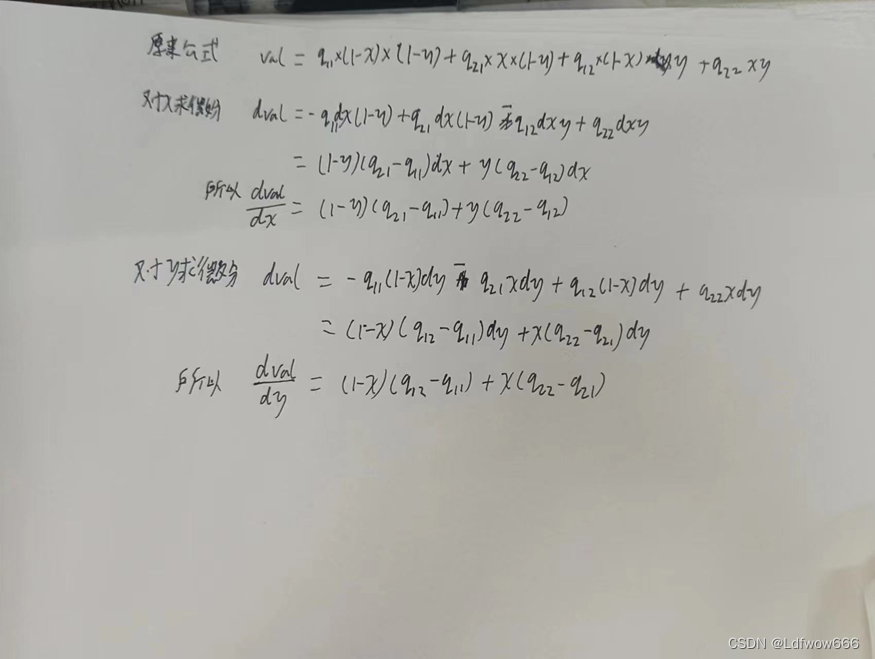 原来公式 val = q₁₁×(1-x)×(1-y)+q₂₁×x×(1-y)+q₁₂×(1-x)×y+q₂₂xy
对x求微分 dval = -q₁₁dx(1-y)+q₂₁dx(1-y)-q₁₂dxy+q₂₂dxy
= (1-y)(q₂₁-q₁₁)dx+y(q₂₂-q₁₂)dx
所以 dval/dx = (1-y)(q₂₁-q₁₁)+y(q₂₂-q₁₂)
对y求微分 dval = -q₁₁(1-x)dy-q₂₁xdy+q₁₂(1-x)dy+q₂₂xdy
= (1-x)(q₁₂-q₁₁)dy+x(q₂₂-q₂₁)dy
所以 dval/dy = (1-x)(q₁₂-q₁₁)+x(q₂₂-q₂₁)
CSDN @Ldfwow666